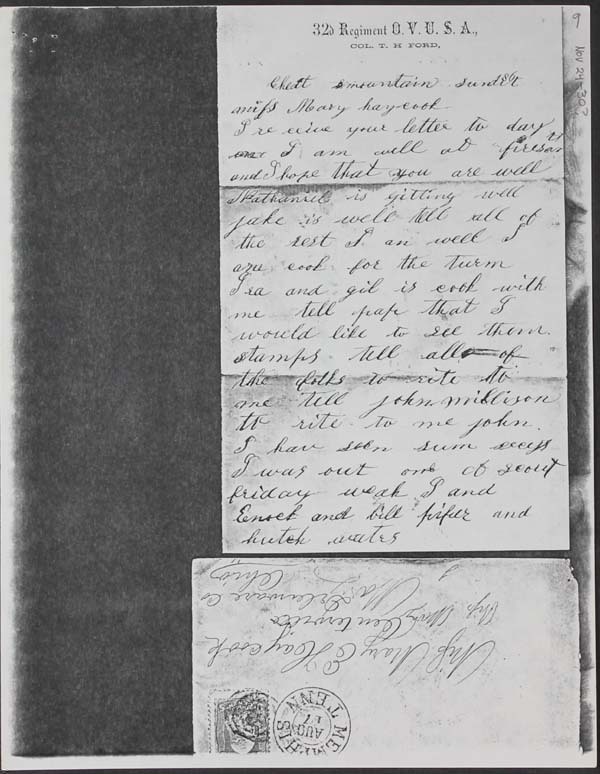 32d Regiment O. V. U. S. A.,
COL. T. H FORD,
9
Nov 24-30?
Cheat mountain
miss Mary haycook
I re ceive your letter to day
I am well at
and I hope that you are well
Nathaniel is gitting well
jake is well tell all of
the rest I an well I
cook for the turm
Ira and gil is cook with
me tell pap that I
would like to see them.
stamps tell all of
the folks to rite to
me tell john millison
to rite to me john.
I hav seen sum
I was out one of scout
friday weak I and
Enock and bill and
hutch
Miss Mary E Haycook
Centerville
Delaware Co
Ohio
MEMPHIS
TENN
AUG
17